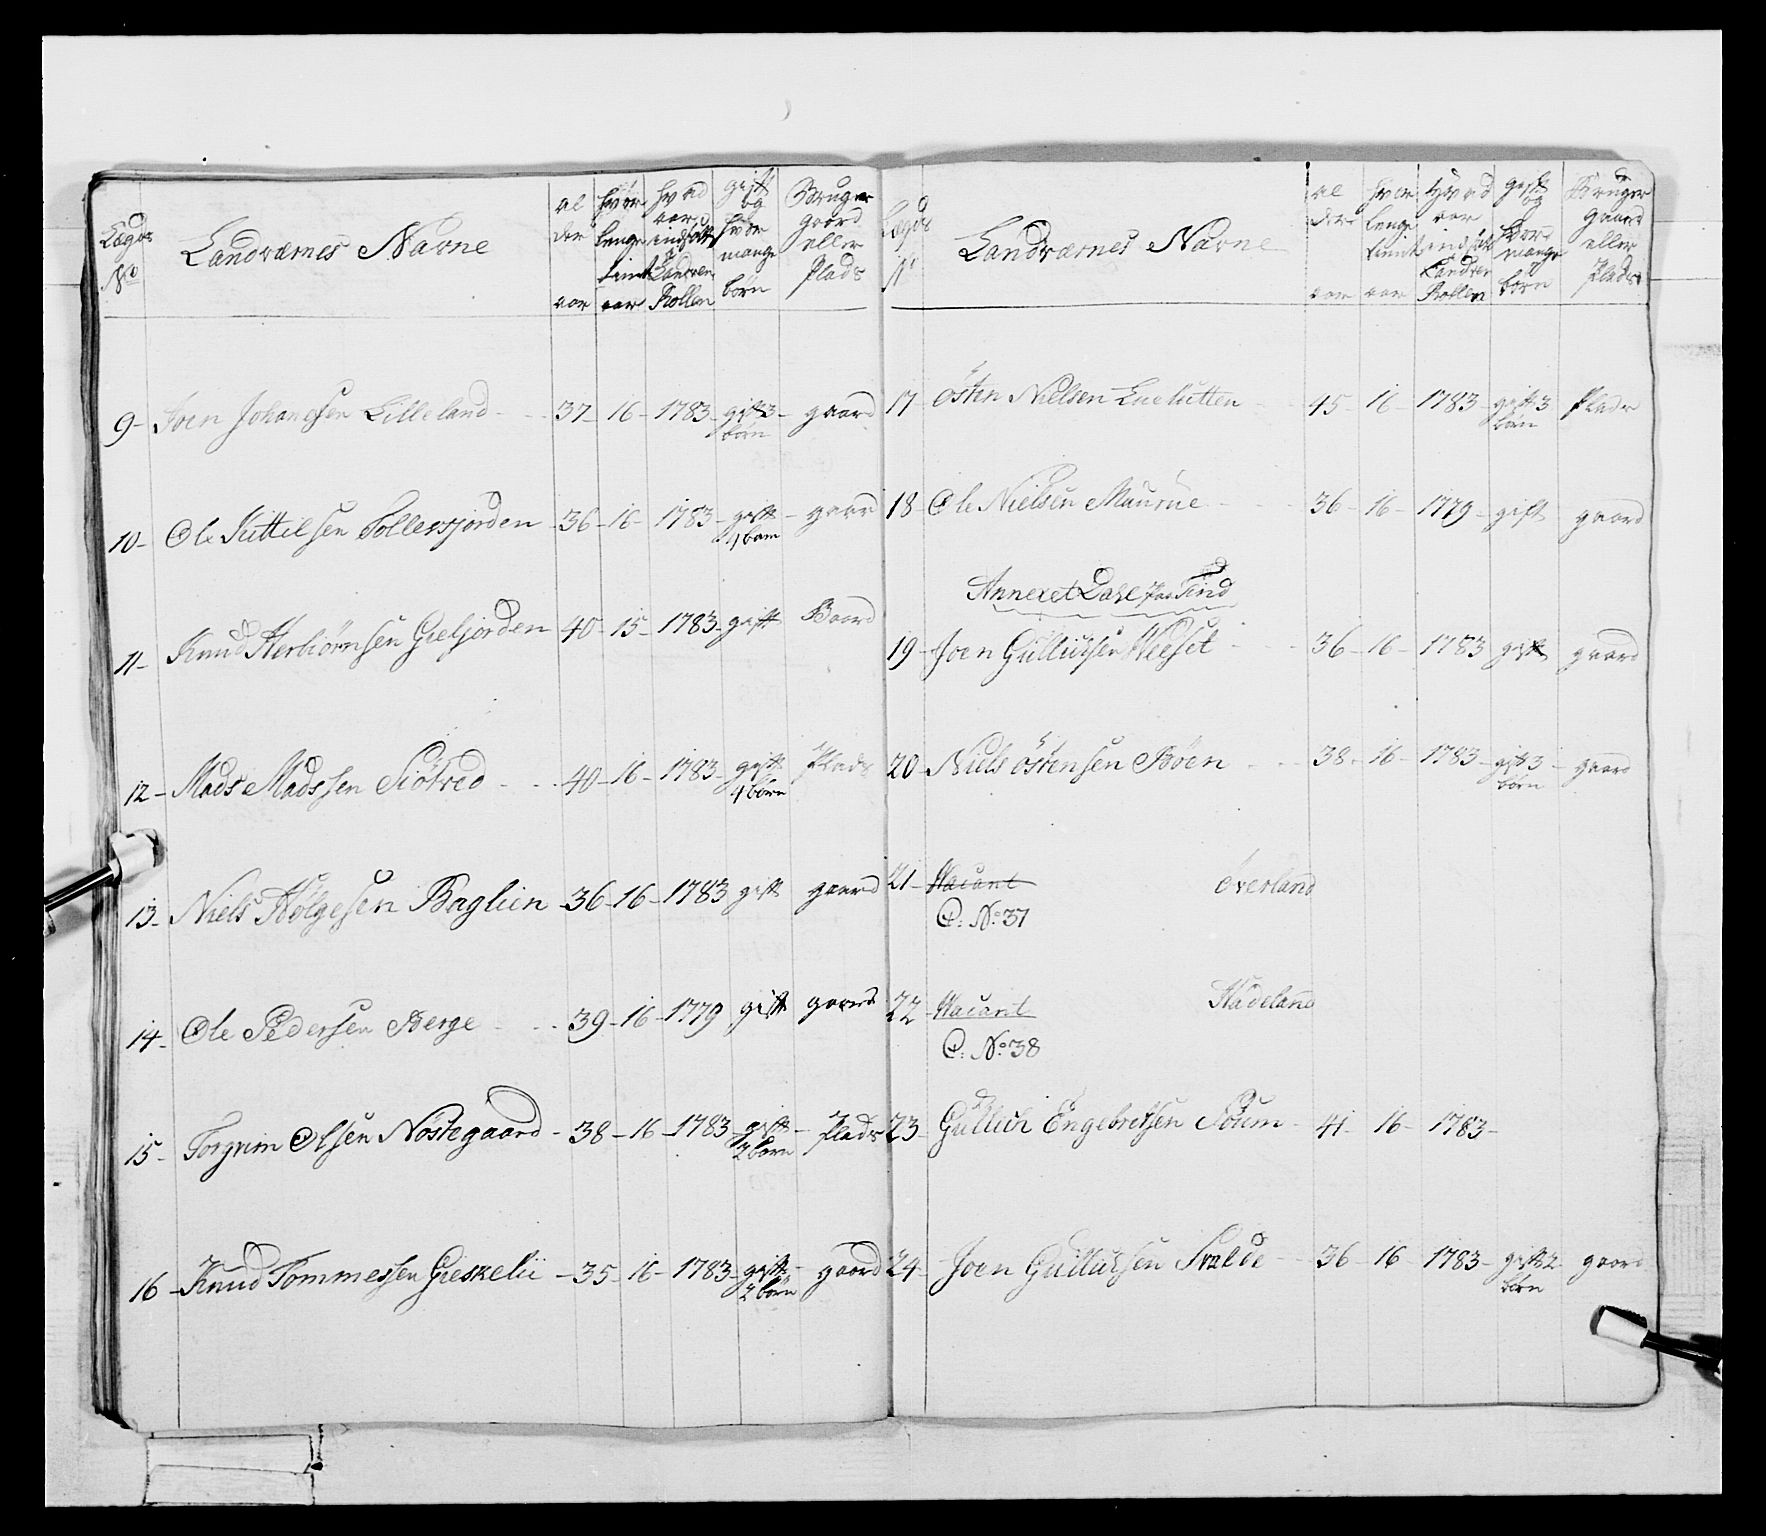 Lægds No
Landværnes Navne
al der aar
hvor lenge tient aar
hvad aar indsatt i Landvær Rollen
gift og hvor mange börn
Bruger gaard eller Plads
9 - Joen Johanesen Lilleland - 37 - 16 - 1783 - gift 3 börn - gaard
10 - Ole Kittilsen Tollefsjorden - 36 - 16 - 1783 - gift 1 barn - gaard
11 - Knud Herbiörnsen Gieljorden 40 - 15 - 1783 - gift Baard
12 - Mads Madssen Siötved - 40 - 16 - 1783 - gift 4 börn Plads
13 - Niels Hölgesen Baglien - 36 - 16 - 1783 gift gaard
14 - Ole Pedersen Berge - 39 - 16 - 1779 gift gaard
15 - Torgrim Olsen Nöstegaard - 38 - 16 - 1783 - gift 2 börn - Plads
16 - Knud Tommessen Gieskelii - 35 - 16 - 1783 - gift 2 börn - gaard
Lægds No
Landværnes Navne
al der aar
hvor lenge tient aar
Hvad aar indsatt i Landvær Rollen
gift og hvor mange börn
Bruger Gaard eller Plads
17 östen Nielsen - 45 - 16 - 1783 - gift 3 börn Plads
18 - Ole Nielsen Maurüe - 36 - 16 - 1779 - gift gaard
Annexet Dahl Tind
19 - Joen Güllichsen Weeset - 36 - 16 - 1783 gift gaard
20 - Niels östensen Böen - 38 - 16 - 1783 - gift 3 börn - gaard
21 - Vacant overland
C: No: 37
22 - Vacant Hadeland
C: No: 38
23 - Güllich Engebretsen - 41 - 16 - 1783 -
24 - Joen Güllichsen - 36 - 16 - 1783 - gift 2 börn - gaard